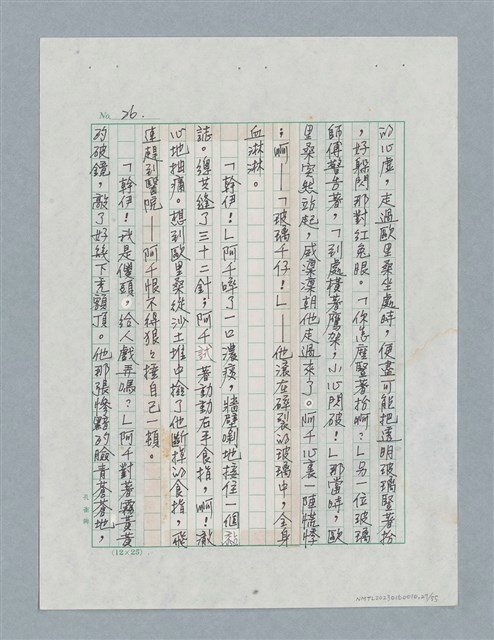 No. 26.
的心虛,走過歐里桑坐處時,便盡可能把透明玻璃豎著扮
,好躲閃那對紅兔眼。「你怎麼豎著扮啊?」另一位玻璃
師傅警告著,「到處橫著鷹架,小心閃破!」那當時,歐
里桑突然站起,威凜凜朝他走過來了。阿千心裏一陣慌悸
,啊——「玻璃千仔!」——他滾在碎裂的玻璃中,全身
血淋淋。
「幹伊!」阿千啐了一口濃痰,牆壁喇地接住一個
誌。總共縫了三十二針;阿千試著動動右手食指,啊!澈
心地抽痛。想到歐里桑從沙土堆中撿了他斷掉的食指,飛
速趕到醫院——阿千恨不得狠々捶自己一頓。
「幹伊!我是儍頭,給人戲弄嗎?」阿千對著霧黃黃
的破鏡,敲了好幾下禿額頂。他那張慘黯的臉青蒼蒼地,
(12×25)
NMTL20230160010_27/55